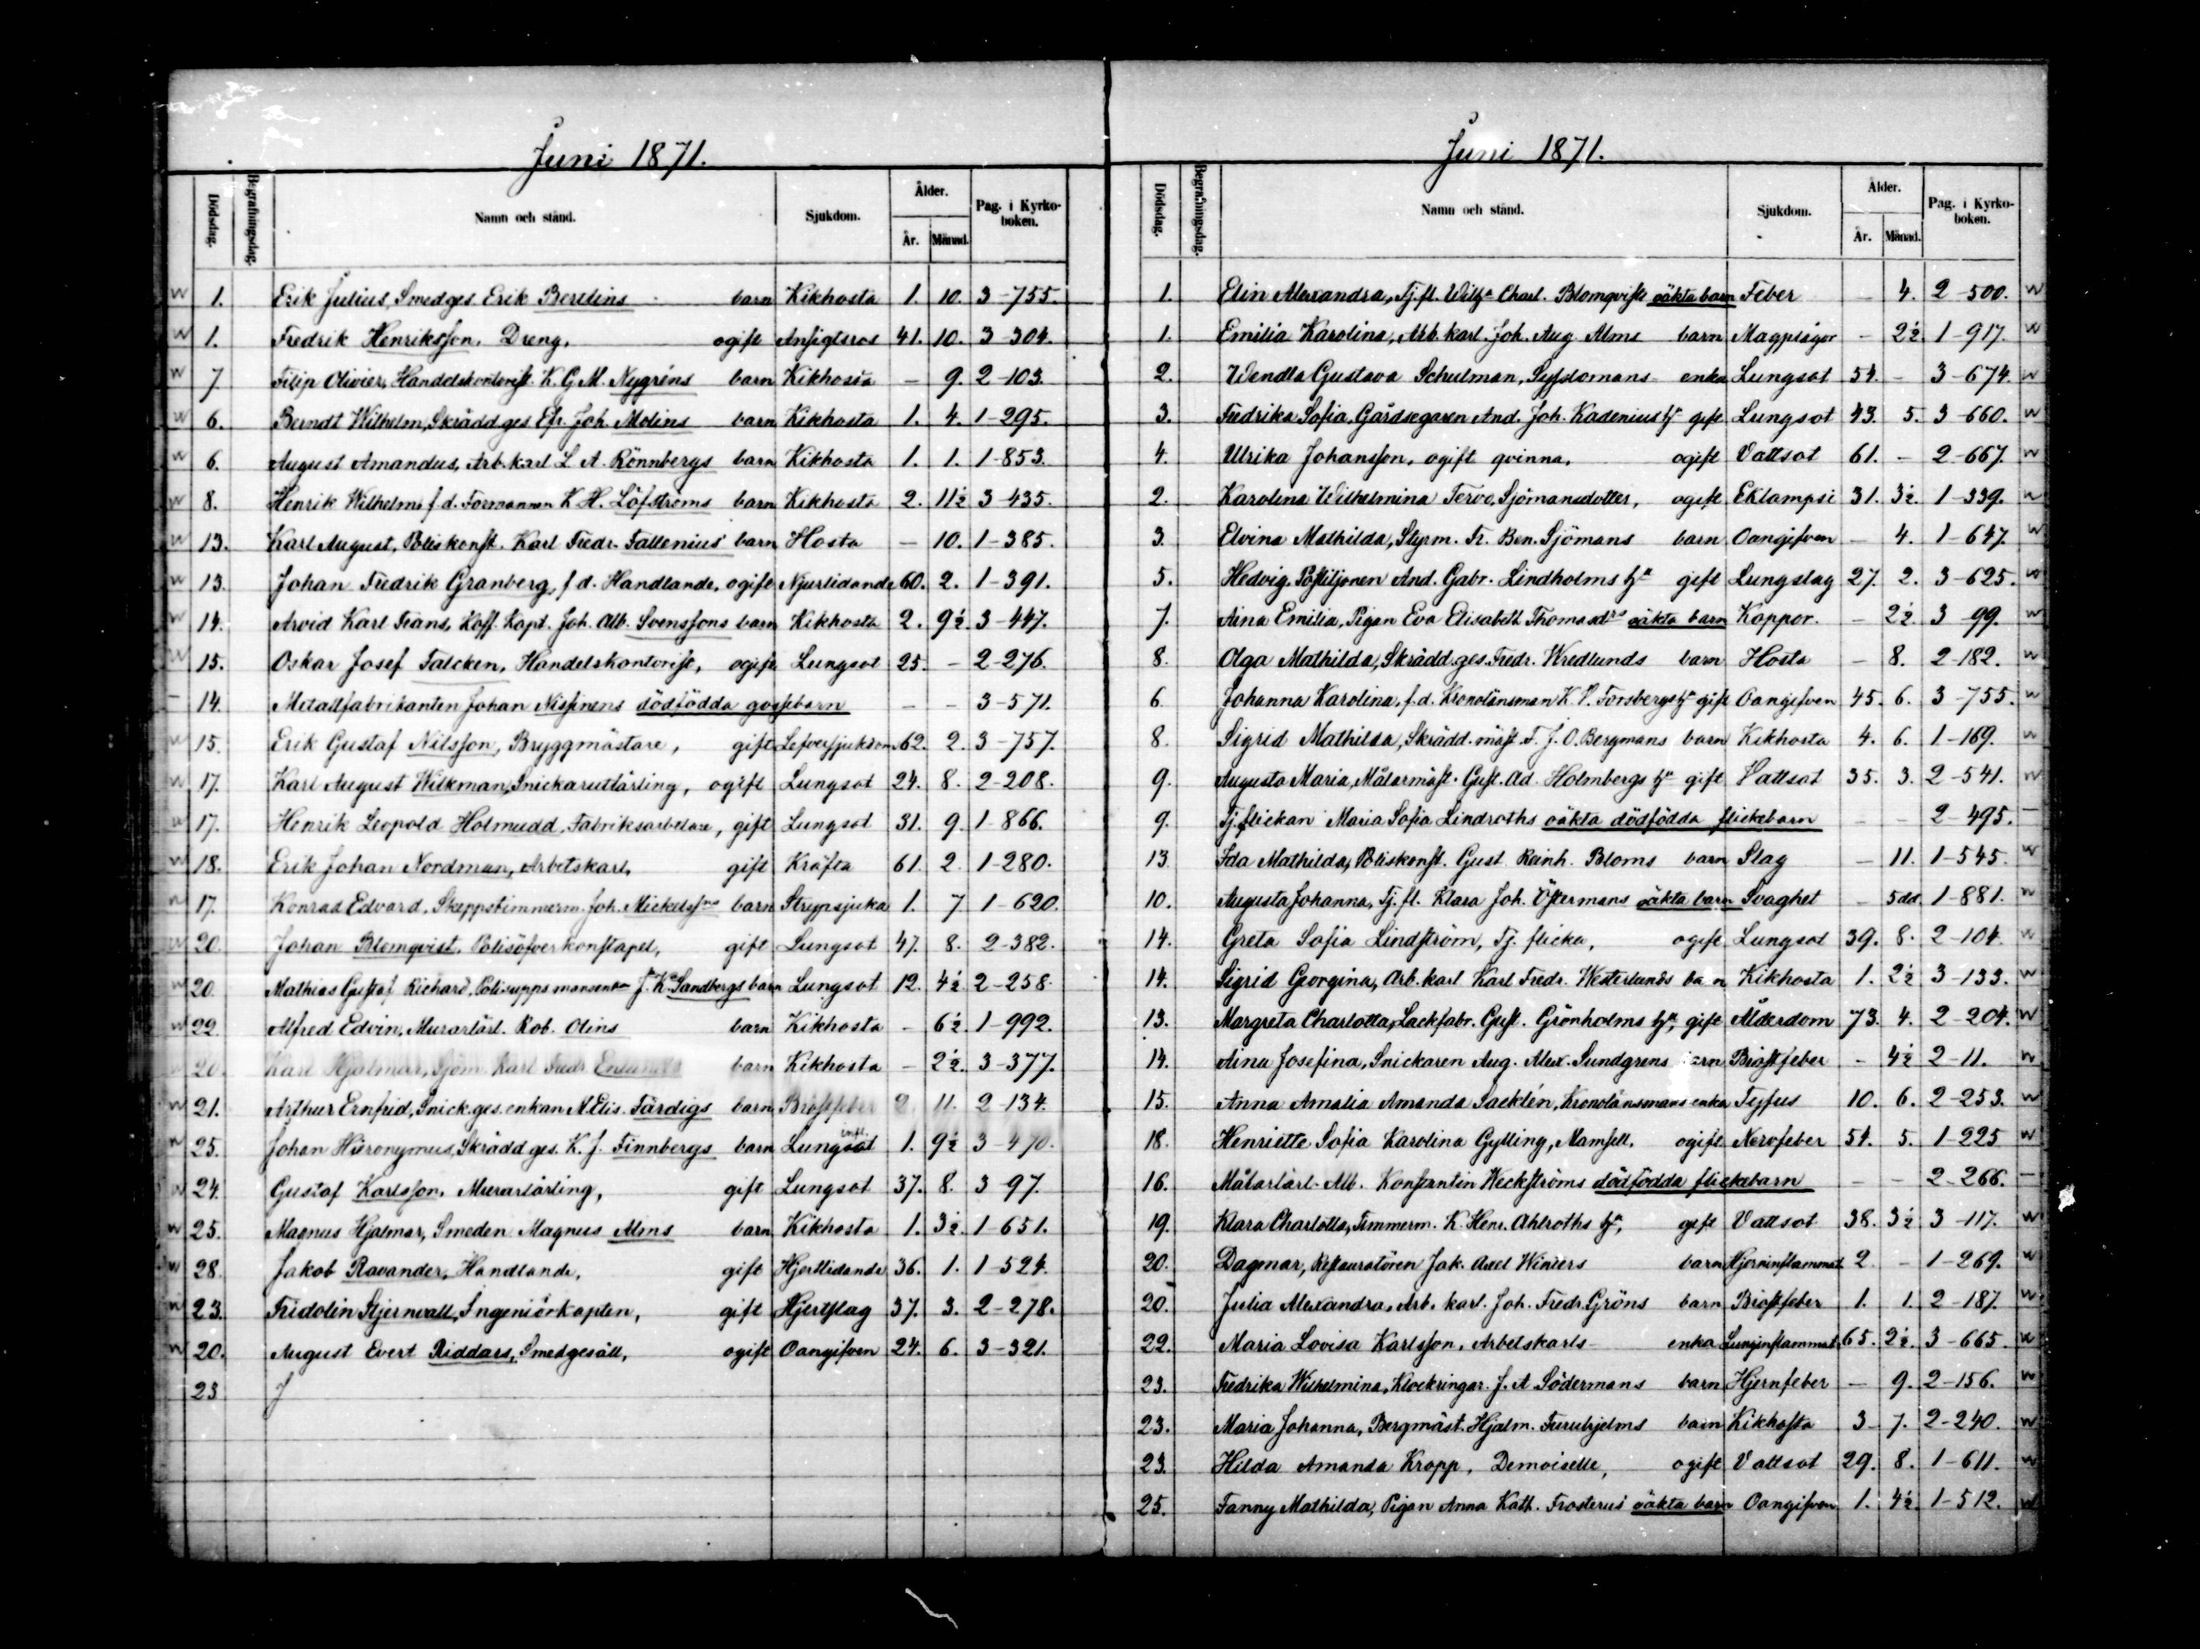 Juni 1871.
Dödsdag. Begrafningsdag. Namn och stånd. Sjukdom. Ålder. År. Månad. Pag. i Kyrkoboken.
w 1. Erik Julius, Smedges. Erik Berelins barn Kikhosta 1. 10. 3-755.
w 1. Fredrik Henriksson, Dreng, ogift Ansigtsros 41. 10. 3-304.
w 7 Filip Olivier, Handelskontorist. K. G. M. Nygréns barn Kikhosta - 9. 2-103.
w 6. Berndt Wilhelm, Skrädd.ges. Efr. Joh. Molins barn Kikhosta 1. 4. 1-295.
w 6. August Amandus, Arb.karl L. A. Rönnbergs barn Kikhosta 1. 1. 1-853.
w 8. Henrik Wilhelm, f.d. Formannen K. H. Löfströms barn Kikhosta 2. 11½ 3-435.
w 13. Karl August, Poliskonst. Karl Fredr. Fallenius barn Hosta - 10. 1-385.
w 13. Johan Fredrik Granberg, f.d. Handlande, ogift Njurlidande 60. 2. 1-391.
w 14. Arvid Karl Frans, Koff. Kapt. Joh. Alb. Svenssons barn Kikhosta 2. 9½ 3-447.
w 15. Oskar Josef Falcken, Handelskontorist, ogift Lungsot 25. - 2-276.
- 14. Metallfabrikanten Johan Nissinens dödfödda gossebarn - - 3-571.
w 15. Erik Gustaf Nilsson, Bryggmästare, gift Lefversjukdom 62. 2. 3-757.
w 17. Karl August Wilkman, Snickarutlärling, ogift Lungsot 24. 8. 2-208.
w 17. Henrik Leopold Holmudd, Fabriksarbetare, gift Lungsot 31. 9. 1-866.
w 18. Erik Johan Nordman, Arbetskarl, gift Kräfta 61. 2 1-280.
w 17. Konrad Edvard, Skeppstimmerm. Joh. Mickelssns barn Strypsjuka 1. 7 1-620.
w 20. Johan Blomqvist, Polisöfverkonstapel, gift Lungsot 47. 8. 2-382.
w 20. Mathias Gustaf Richard, J. K. Sandbergs barn Lungsot 12. 4½ 2-258.
w 22. Alfred Edvin, Murarlärl. Rob. Olins barn Kikhosta - 6½ 1-992.
20. Karl Hjalmar, Sjöm. Karl Fredr. Enlunds barn Kikhosta - 2½. 3-377.
w 21. Arthur Ernfrid, Snick.ges.enkan M. Elis. Färdigs barn Bröstfeber 2 11. 2-134.
w 25. Johan Hieronymus, Skrädd.ges. K. J. Finnbergs barn Lungsot 1. 9½ 3-470.
w 24. Gustaf Karlsson, Murarlärling, gift Lungsot 37. 8. 3-97.
w 25. Magnus Hjalmar, Smeden Magnus Alms barn Kikhosta 1. 3½. 1-651.
w 28. Jakob Ravander, Handlande, gift Hjertlidande 36. 1. 1-524.
w 23. Fridolin Stjernvall, Ingeniörkapten, gift Hjertslag 37. 3. 2-278.
w 20. August Evert Riddars, Smedgesäll, ogift Oangifven 24. 6. 3-321.
23 J
Juni 1871.
Dödsdag. Begrafningsdag. Namn och stånd. Sjukdom. Ålder. År. Månad. Pag. i Kyrkoboken.
1. Elin Alexandra, Tj.fl. Wilha Charl. Blomqvists oäkta barn Feber - 4. 2-500. w
1. Emilia Karolina, Arb.karl. Joh. Aug. Alms barn Magplågor - 2½. 1-917. w
2. Wendla Gustava Schulman, Sysslomans enka Lungsot 54. - 3-674. w
3. Fredrika Sofia, Gårdsegaren And. Joh. Kadenius hu gift Lungsot 43. 5. 3-660. w
4. Ulrika Johansson, ogift qvinna, ogift Vattsot 61. - 2-667. w
2. Karolina Wilhelmina Tervo, Sjömansdotter, ogift Eklampsi 31. 3½. 1-339. w
3. Elvina Mathilda, Styrm. Fr. Ben. Sjömans barn Oangifven - 4. 1-647. w
5. Hedvig, Postiljonen And. Gabr. Lindholms hu gift Lungslag 27. 2. 3-625. w
7. Aina Emilia, Pigan Eva Elisabeth Thomasdrs oäkta barn Koppor. - 2½. 3-99. w
8. Olga Mathilda, Skrädd.ges. Fredr. Wredlunds barn Hosta - 8. 2-182. w
6. Johanna Karolina, f.d. Kronolänsman K. V. Forsbergs hu gift Oangifven 45. 6. 3-755. w
8. Sigrid Mathilda, Skrädd.mäst. F. J. O. Bergmans barn Kikhosta 4. 6. 1-169. w
9. Augusta Maria, Målarmäst. Gust. Ad. Holmbergs hu gift Vattsot 35. 3. 2-541. w
9. Tj.flickan Maria Sofia Lindroths oäkta dödfödda flickebarn - - 2-495. -
13. Ida Mathilda, Poliskonst. Gust. Reinh. Bloms barn Slag - 11. 1-545. w
10. Augusta Johanna, Tj.fl. Klara Joh. Östermans oäkta barn Svaghet - 5 dd. 1-881. w
14. Greta Sofia Lindström, Tj. flicka, ogift Lungsot 39. 8. 2-104. w
14. Sigrid Georgina, Arb.karl Karl Fredr. Westerlunds ba n Kikhosta 1. 2½ 3-133. w
13. Margreta Charlotta, Lackfabr. Gust. Grönholms hu, gift Ålderdom 73. 4. 2-204. w
14. Aina Josefina, Snickaren Aug. Alex. Sundgrens arn Bröstfeber - 4½ 2-11. w
15. Anna Amalia Amanda Jacklén, Kronolänsmans enka Tyfus 10. 6. 2-253. w
18. Henriette Sofia Karolina Gylling, Mamsell, ogift Nervfeber 54. 5. 1-225 w
16. Målarlärl. Alb. Konstantin Weckströms dödfödda flickebarn - - 2-266. -
19. Klara Charlotta, Timmerm. K. Henr. Ahlroths hu, gift Vattsot 38. 3½ 3-117. w
20. Dagmar, Restauratören Jak. Axel Winters barn Hjerninflammat. 2 - 1-269. w
20. Julia Alexandra, Arb. karl. Joh. Fredr. Gröns barn Bröstfeber 1. 1. 2-187. w
22. Maria Lovisa Karlsson, Arbetskarls enka Lunginflammat. 65. 2½. 3-665. w
23. Fredrika Wilhelmina, Klockringar. J. A. Södermans barn Hjernfeber - 9. 2-156. w
23. Maria Johanna, Bergmäst. Hjalm. Furuhjelms barn Kikhosta 3 7. 2-240. w
23. Hilda Amanda Kropp, Demoiselle, ogift Vattsot 29. 8. 1-611. w
25. Fanny Mathilda, Pigan Anna Kath. Frosterus oäkta barn Oangifven 1. 4½. 1-512. w